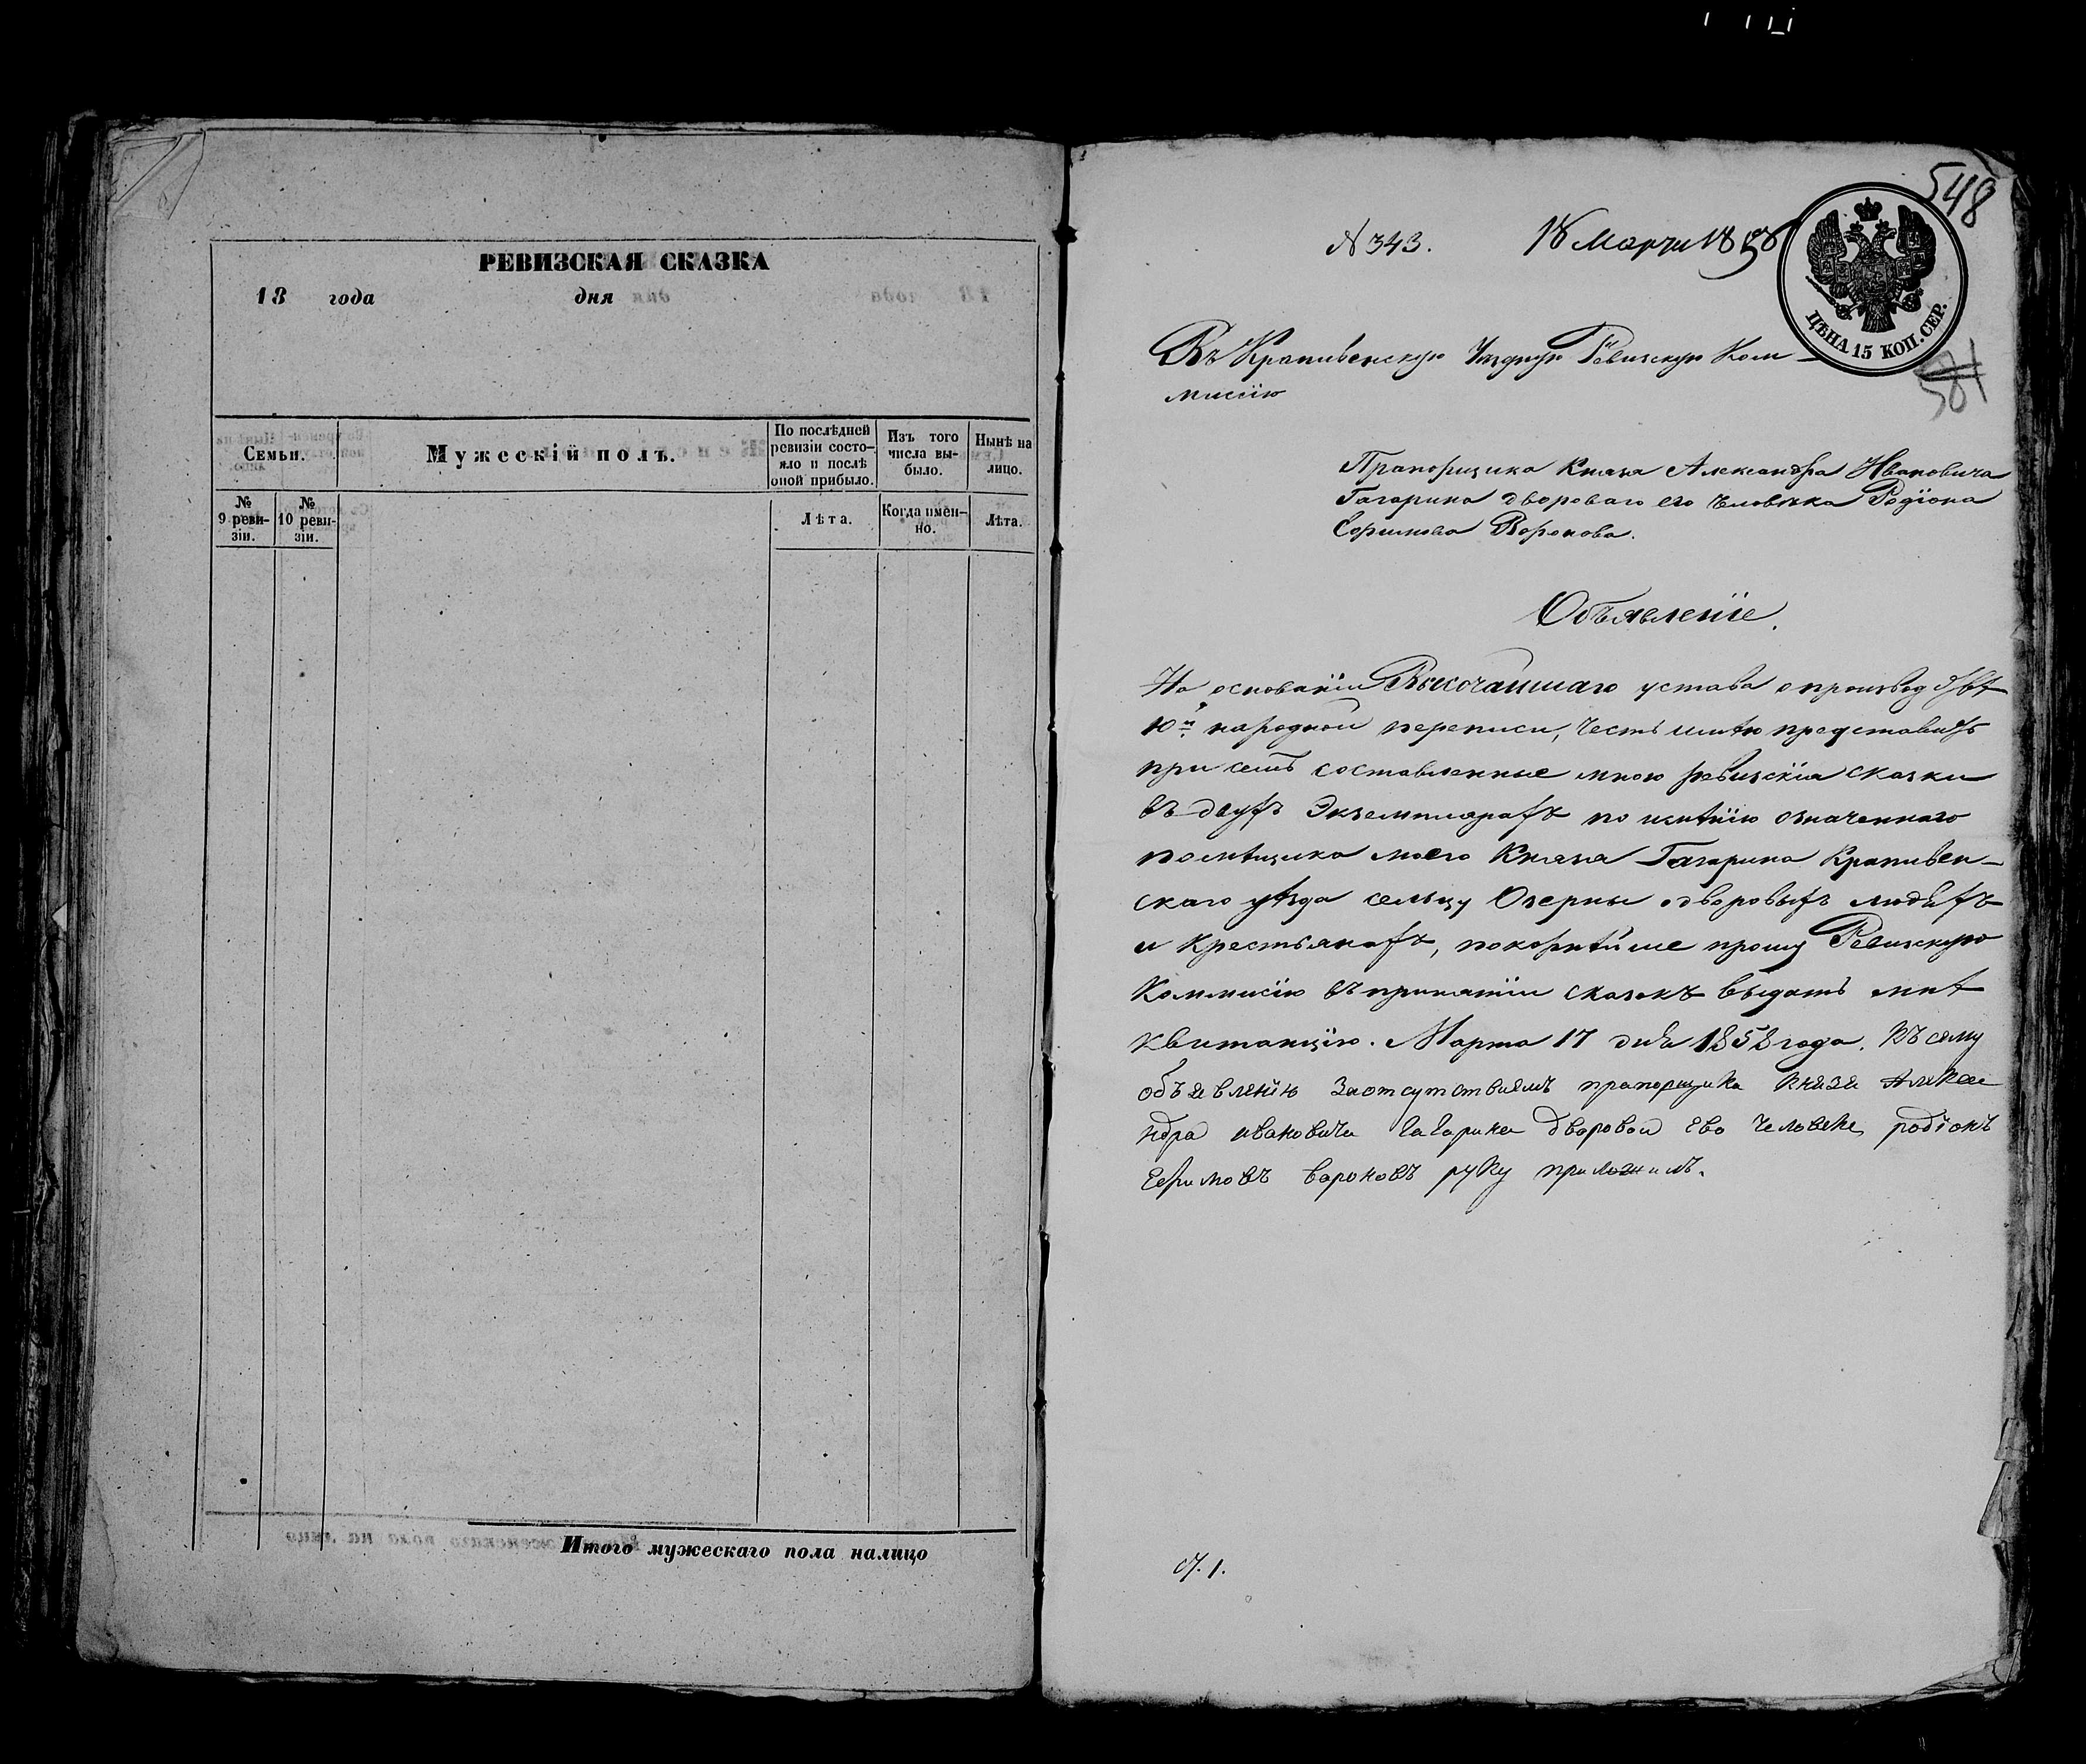 РЕВИЗСКАЯ СКАЗКА
18 года дня
Семьи.
Мужескій полъ.
По послѣдней ревизіи состо-
яло и послѣ
оной прибыло.
Изъ того
числа вы-
было.
Нынѣ на
лицо.
№
9 реви-
зіи.
№
10 реви-
зіи.
Лѣта.
Когда имен-
но.
Лѣта.
Итого мужескаго пола налицо
548
N 343. 18 Марта 1858
ЦѢНА 15 КОП. СЕР.
Въ Крапивенскую Уѣздную Ревизскую Ком-
мисію
Прапорщика Князя Александра Ивановича
Гагарина двороваго его человѣка Родіона
Воронова.
Объявленіе.
На основаніи Высочайшаго устава о производствѣ
10й народной переписи, честь имѣю представить
при семъ составленные мною ревизскія сказки
въ двухъ Экземплярахъ по имѣнію означеннаго
помѣщика моего Князя Гагарина Крапивен-
скаго уѣзда сельцу Озерны о дворовыхъ людѣхъ
и крестьянахъ, покорнѣйше прошу Ревизскую
Коммисію въ принятіи сказокъ выдать мнѣ
квитанцію. Марта 17 дня 1858 года. Къ сему
объявленію заотсутствиямъ прапорщика князя Алекса
ндра ивановича гагарина дворовои ево человекъ родіонъ
вароновъ руку приложилъ.